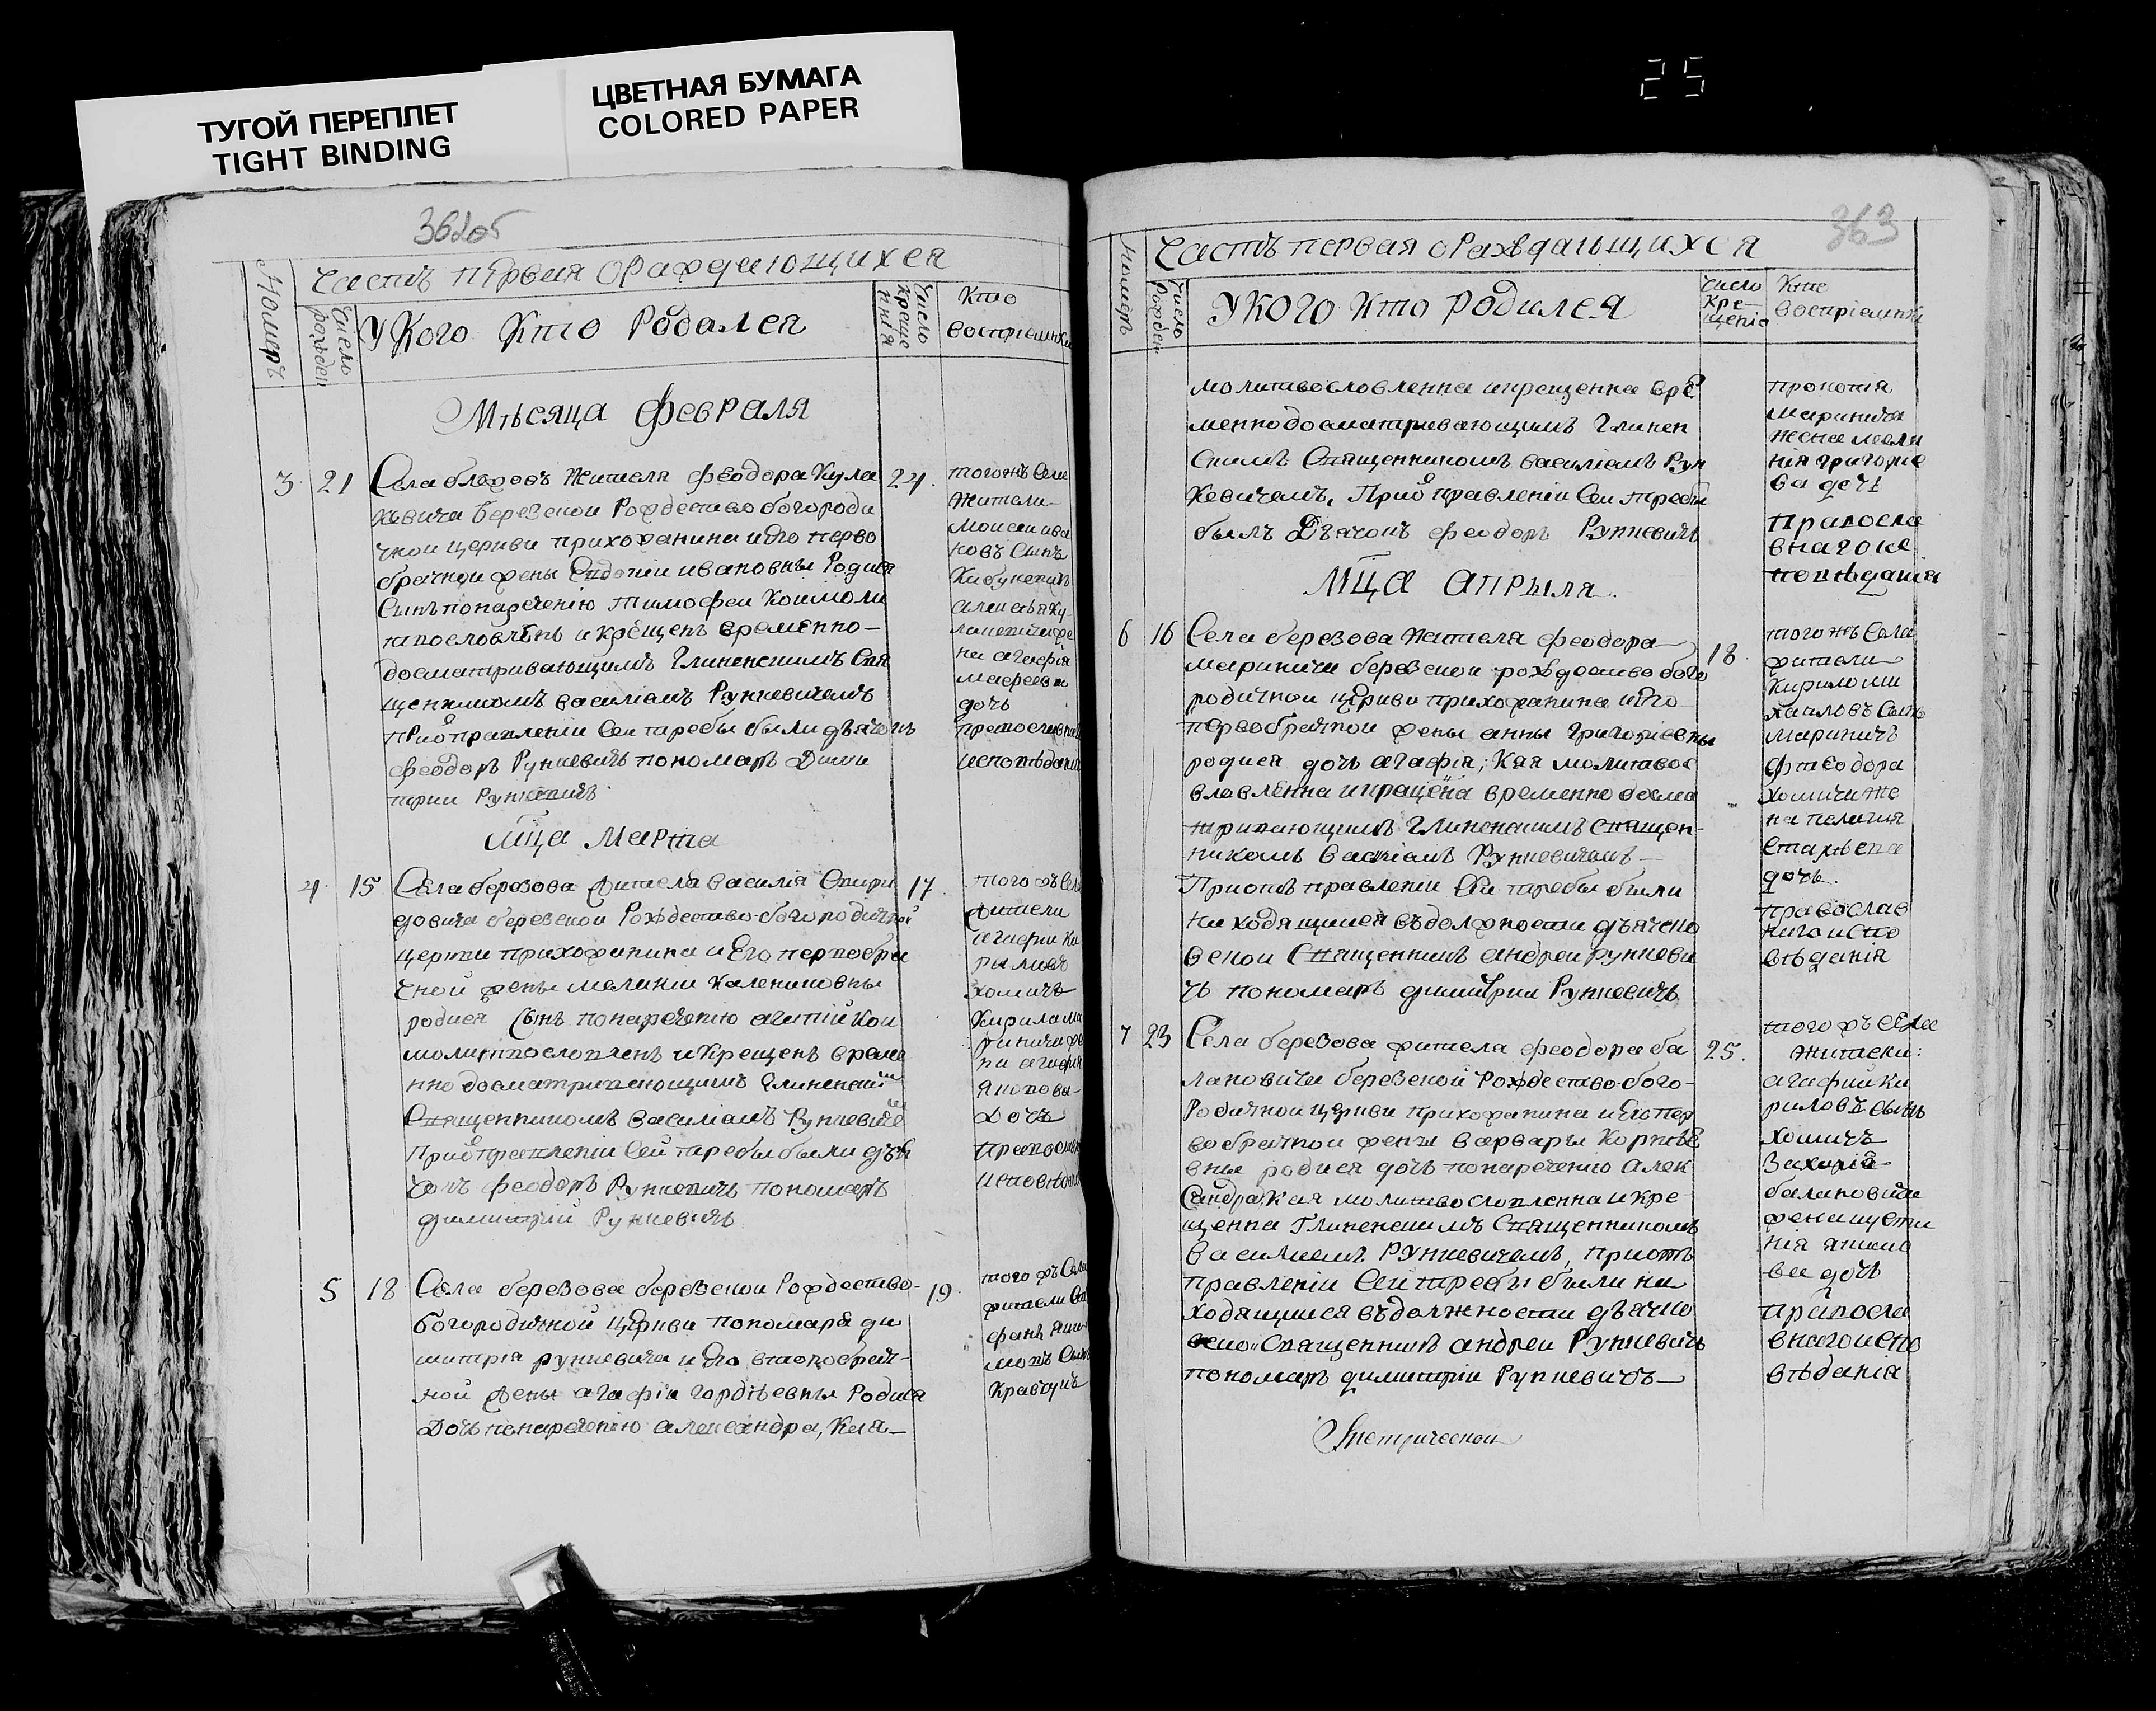 ТУГОЙ ПЕРЕПЛЕТ
TIGHT BINDING
ЦВЕТНАЯ БУМАГА
COLORED PAPER
25
362об
Часть первая о раждающихся
Номеръ
Число рожден
У Кого Кто Родился
Число крещенія
Кто воспріемники
Мѣсяца Февраля
3 21 Села Жителя Феодора Кула 24.
кѣвича березской Рождество богороди
чной церкви прихожанина и Его перво
брачной жены Ивановны Родися
Сынъ понаречению Тимофей Кой моли
твословлѣнъ и крещенъ временно
досматривающимъ Глиненскимъ Свя
щенникомъ василіемъ Рункевичемъ
При отправлении Сей требы были дьячокъ
феодоръ Рункевичъ пономаръ Дими
трий Рункевичъ
тогожъ Села
Жители
Моисей ива
новъ Сынъ
на агафія
дочь
православнаго
исповѣдания
Мца Марта
4 15 Села березова жителя василія Спири 17.
довича березской Рождество-богородичной
церкви прихожанина и Его первобра
чной жены мелании Калениковны
родися Сынъ понаречению агапий Кой
молитвословленъ и Крещенъ време
нно досматривающимъ Глиненским
Священникомъ василіемъ Рункевичем
При отправлении Сей требы были дья
чокъ феодоръ Рункевичъ пономаръ
димитрий Рункевичъ
того жъ Села
жители
агафий Ки
риловъ
хомичъ
Кирила ма
ринича же
на агафия
Якова
Дочь
5 18 Села березова березской Рождество- 19.
богородичной Церкви пономаря ди
митрія рункевича и Его второбрач-
ной жены агафіи гордѣевны Родися
Дочь понаречению александра, Кая
того жъ Села
жители
Кравчукъ
363
Часть первая о раждающихся
Номеръ
Число Рожден
У КОГО Кто Родился
Число Крещенія
Кто воспріемники
молитвословленна и крещенна вре
менно досматривающимъ Глинен
скимъ Священникомъ василіемъ Рун
кевичемъ, При отправленіи Сей требы
былъ Дьячокъ феодоръ Рункевичъ
прокопія
маринича
жена мела
нія григорие
ва дочь
Правосла
внаго ис
повѣдания
МЦа Апрыля
6 16 Села березова жителя феодора 18.
маринича березской рождество бого
родичной церкви прихожанина и Его
первобрачной жены анны григориевны
родися дочь агафія; Кая молитвос
вловлѣнна и крещена временно досма
тривающимъ Глиненскимъ Священ-
никомъ василіемъ Рункевичемъ
При отъправлении Сей требы были
находящийся въ должности дьячко
вской Священникъ андрей рункеви
чъ пономаръ димитрий Рункевичъ
того жъ Села
жители
Кирило ми
хайловъ Сынъ
Мариничъ
феодора
хомича же
на пелагия
дочь
православ
наго испо
вѣданія
7 23 Села березова жителя феодора ба 25.
лановича березской Рождество-бого-
Родичной церкви прихожанина и Его пер
вобрачной жены варвары Корнѣе
вны родися дочь понаречению Алек
сандра Кая молитвословленна и кре
щенна Глиненскимъ Священникомъ
василиемъ Рункевичемъ, При отъ
правлении Сей требы были на
ходящийся въ должности дьячко
вской Священникъ андрей Рункевичъ
пономаръ димитрий Рункевичъ
того жъ Села
жители:
агафий Ки
риловъ сынъ
Хомичъ
Захарія
балановича
жена
дочь
правосла
внаго испо
вѣданія
Метрической